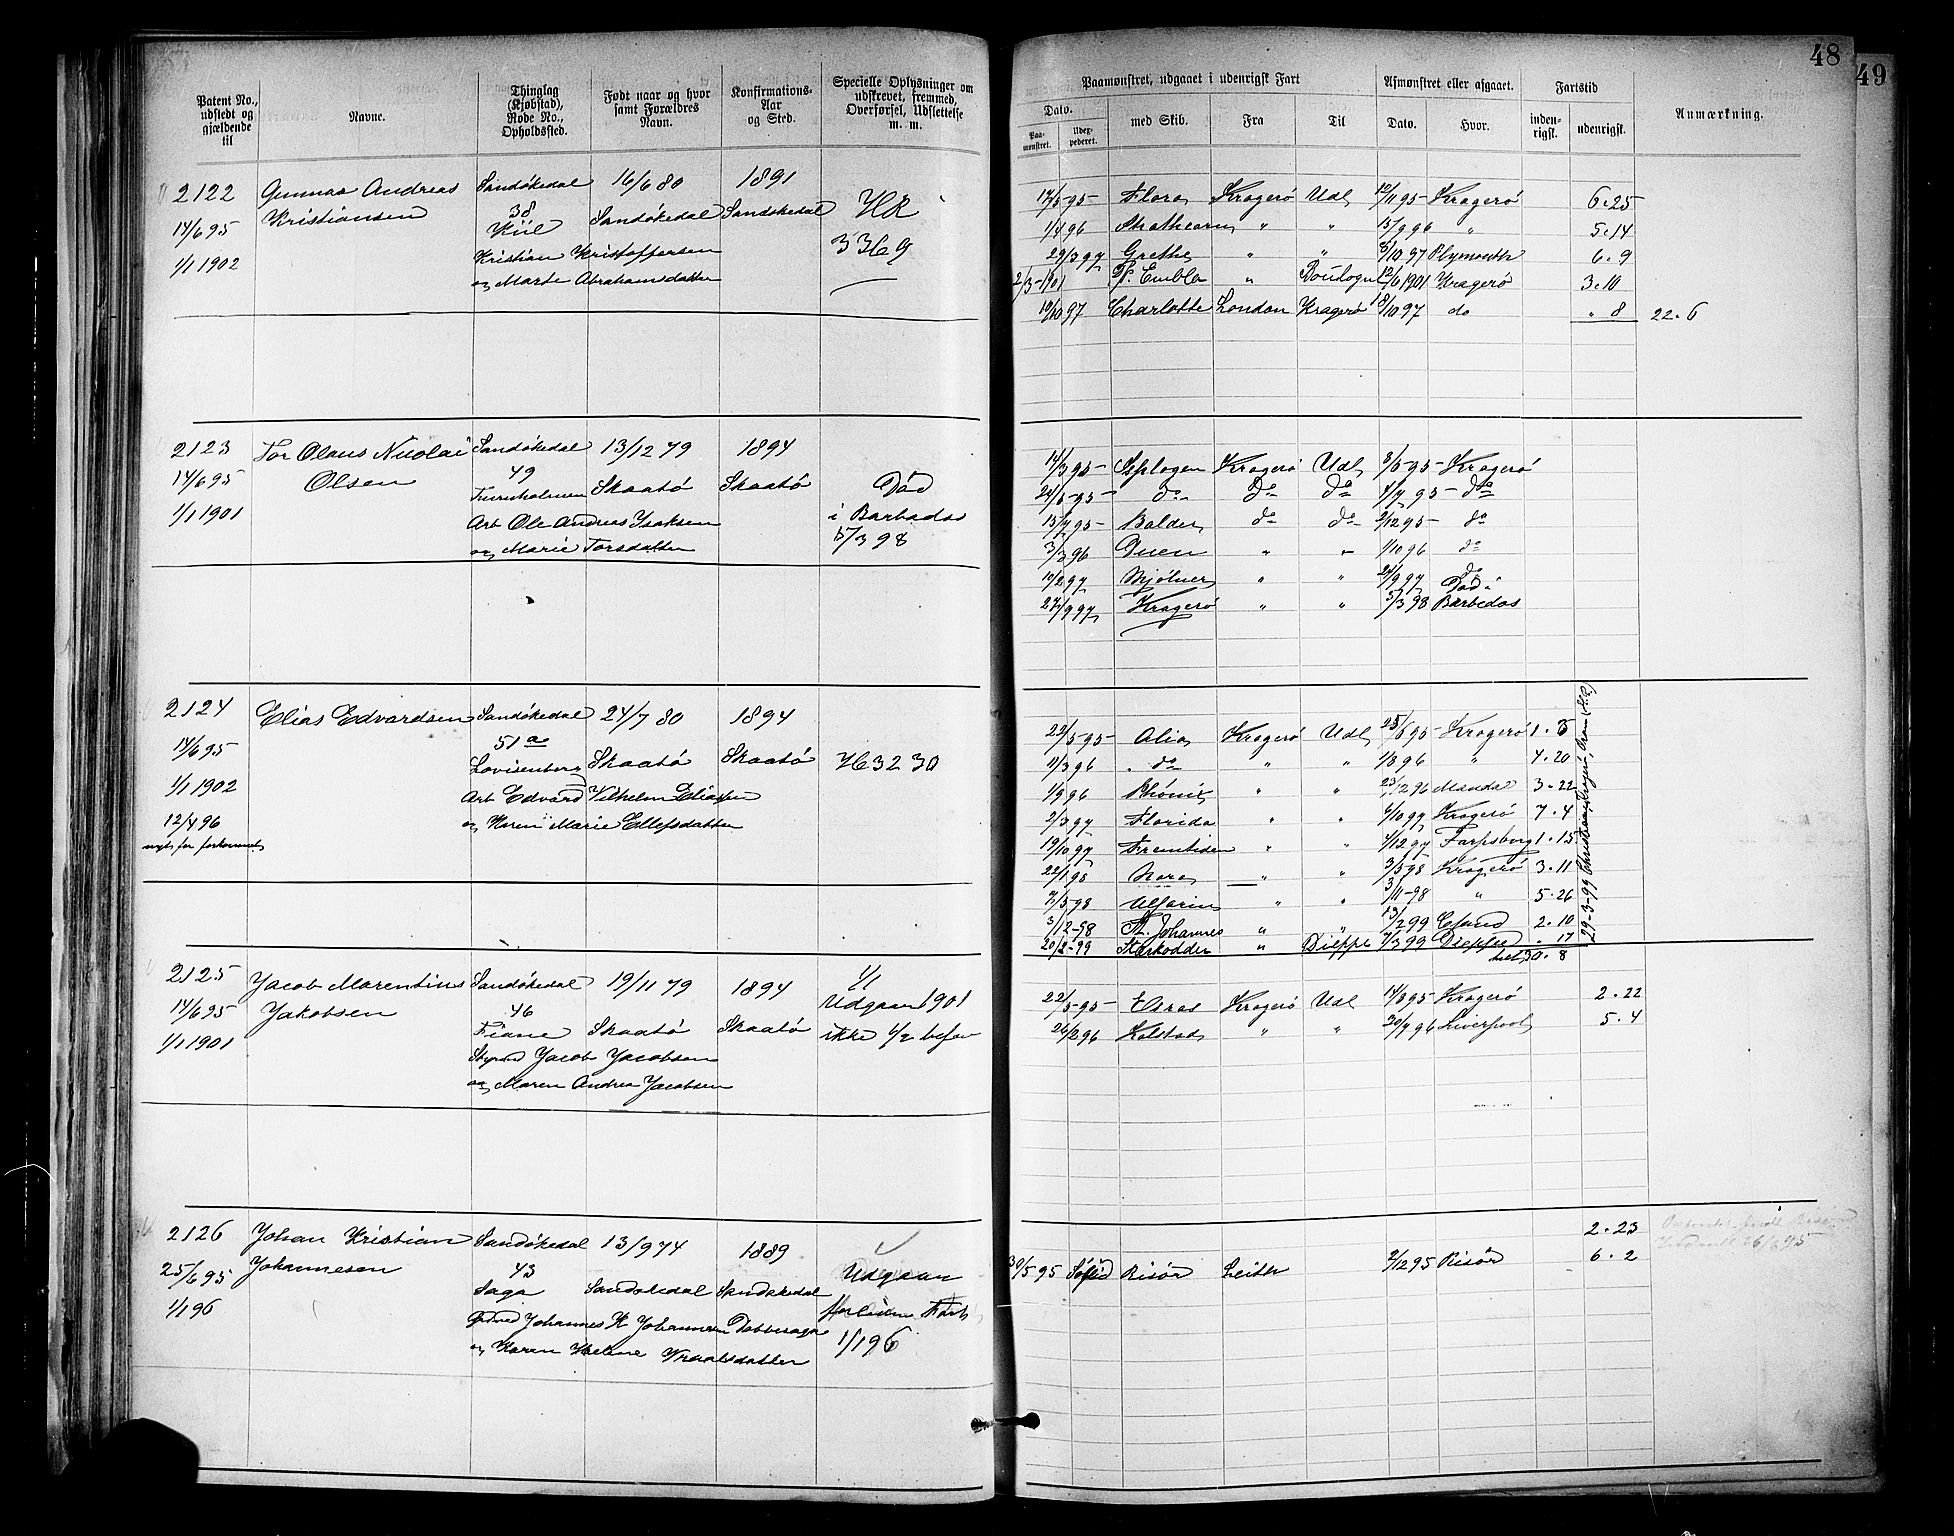 48
49
Patent No., udstedt og gjældende til
Navne.
Thinglag (Kjøbstad), Rode No., Opholdssted.
Født naar og hvor samt Forældres Navn.
Konfirmations- Aar og Sted.
Specielle Oplysninger om udskrevet, fremmed, Overførsel, Udslettelse m. m.
Paamønstret, udgaaet i udenrigsk Fart
Afmønstret eller afgaaet.
Fartstid
Anmærkning.
Dato. Paamønstret. Udexpederet.
med Skib.
Fra
Til
Dato.
Hvor.
indenrigsk.
udenrigsk.
2122 Gunnar Andreas Sandökedal 16/6 80 1891
Kristiansen 38 Sandökedal Sandökedal HR
14/6 95 Kiil 3369
1/1 1902 Kristian Kristoffersen
og Marte Abrahamsdatter
14/5 95 Flora Kragerö Udl 12/11 95 Kragerö 6.25
1/4 96 Strathearn " " 15/9 96 " 5.14
29/3 97 Grethe " " 8/10 97 Plymouth 6.9
2/3-1901 Embla " Boulogne 12/6 1901 Kragerö 3.10
10/10 97 Charlotte London Kragerö 18/10 97 do " 8 22.6
2123 Tor Olaus Nicolai Sandökedal 13/12 79 1894
14/6 95 Olsen 49 Skaatö Skaatö Död
1/1 1901 Arb Ole Andreas Isaksen i Barbados
og Marie Torsdatter 5/3 98
14/3 95 Isplogen Kragerö Udl 8/5 95 Kragerö
24/5 95 do do do 4/7 95 do
15/7 95 Balder do do 2/12 95 do
3/3 96 Duen " " 1/10 96 do
14/2 97 Mjölner " " 24/9 97 do
27/9 97 Kragerö " " 5/3 98 Död i Barbedos
2124 Elias Edvardsen Sandökedal 24/7 80 1894
14/6 95 51a
Lovisenberg Skaatö Skaatö H 3230
1/1 1902 Arb Edvard Vilhelm Eliassen
12/4 96 og Karen Marie Ellefsdatter
nyt for forkommet
22/5-95 Alia Kragerö Udl 25/6 95 Kragerö 1.3
11/3 96 do " " 1/8 96 " 4.20
1/9 96 Phönix " " 23/12 96 Mandal 3.22
2/3 97 Florida " " 6/10 97 Kragerö 7.4
19/10 97 Fremtiden " " 4/12 97 Sarpsborg 1.15
22/1 98 Nora " " 3/5 98 Kragerö 3.11
7/5 98 " " 3/11-98 " 5.26
3/12-98 St. Johannes " " 13/2 99 2.10
20/2-99 Stærkodder " Dieppe 7/3 99 Dieppe " 17
30.8
29-3-99
2125 Jacob Marentius Sandökedal 19/11 79 1894 1/1
14/6 95 Jakobsen 46 Udgaar 1901
1/1 1901 Fiane Skaatö Skaatö ikke 1/2 befar
Skpmd Jacob Jacobsen
og Maren Andrea Jacobsen
22/5-95 Kragerö Udl 14/8 95 Kragerö 2.22
26/2 96 Kalstad " " 30/7 96 Liverpool 5.4
2126 Johan Kristian Sandökedal 13/9 74 1889
25/6 95 Johannesen 43 Udgaar
1/1 96 Saga Sandökedal Sandökedal
Johannes K Johannesen Dobbesaga 1/1 96
og Karen Helene Vraalsdatter
2.23
30/5 95 Risör Leith 2/12 95 Risör 6.2
26/6 95